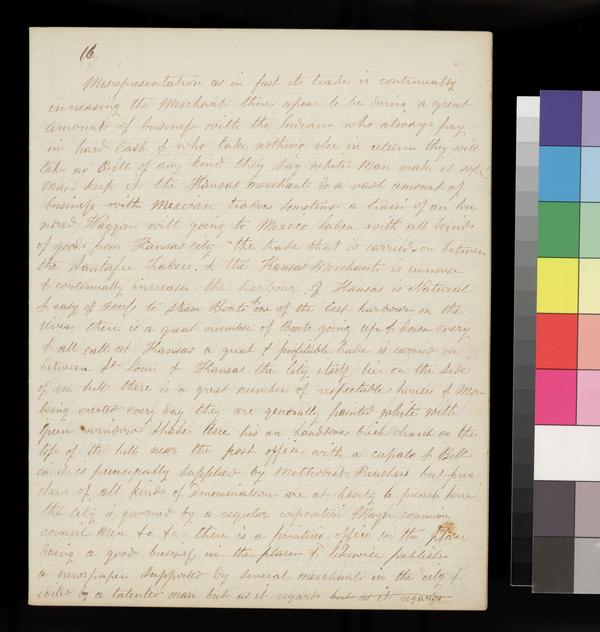 16
Misrepresentation as in fact its trade is continually
increasing the Merchants there apear to be doing a great
amount of business with the Indians who always pay
in hard Cash & who take nothing else in return they will
tak no Bills of any kind they say white man make it white
man keep it the Kansas merchants do a vast amount of
business with Mexican traders sometimes a train of an hun
ndred Waggons will going to Mexico laden with all kinds
of goods from Kansas city the trade that is carried on between
the Santafee Traders & the Kansas Merchants is immense
& continually increases the harbour of Kansas is Natural
& easy of access to Steam Boats & one of the best harbours on the
River there is a great number of Boats going up & down every
& all call at Kansas a great & profitible trade is carried on
between St Louis & Kansas the City itself lies on the side
of an hill there is a great number of respectable houses & More
being erected every day they are generally painted white with
green window shades there his an handsome brick church on the
top of the hill near the post office with a cupalo & Bell
in it is principally supplied by Methodist Preachers but prea
chers of all kinds of Denomination are at liberty to preach here
the city is governed by a regular corporation Mayor common
council Men &c &c there is a printing office in the place
doing a good business in the place & likewise publishes
a newspaper supported by several merchants in the city &
edited by a talented man but as it regards but as it regards